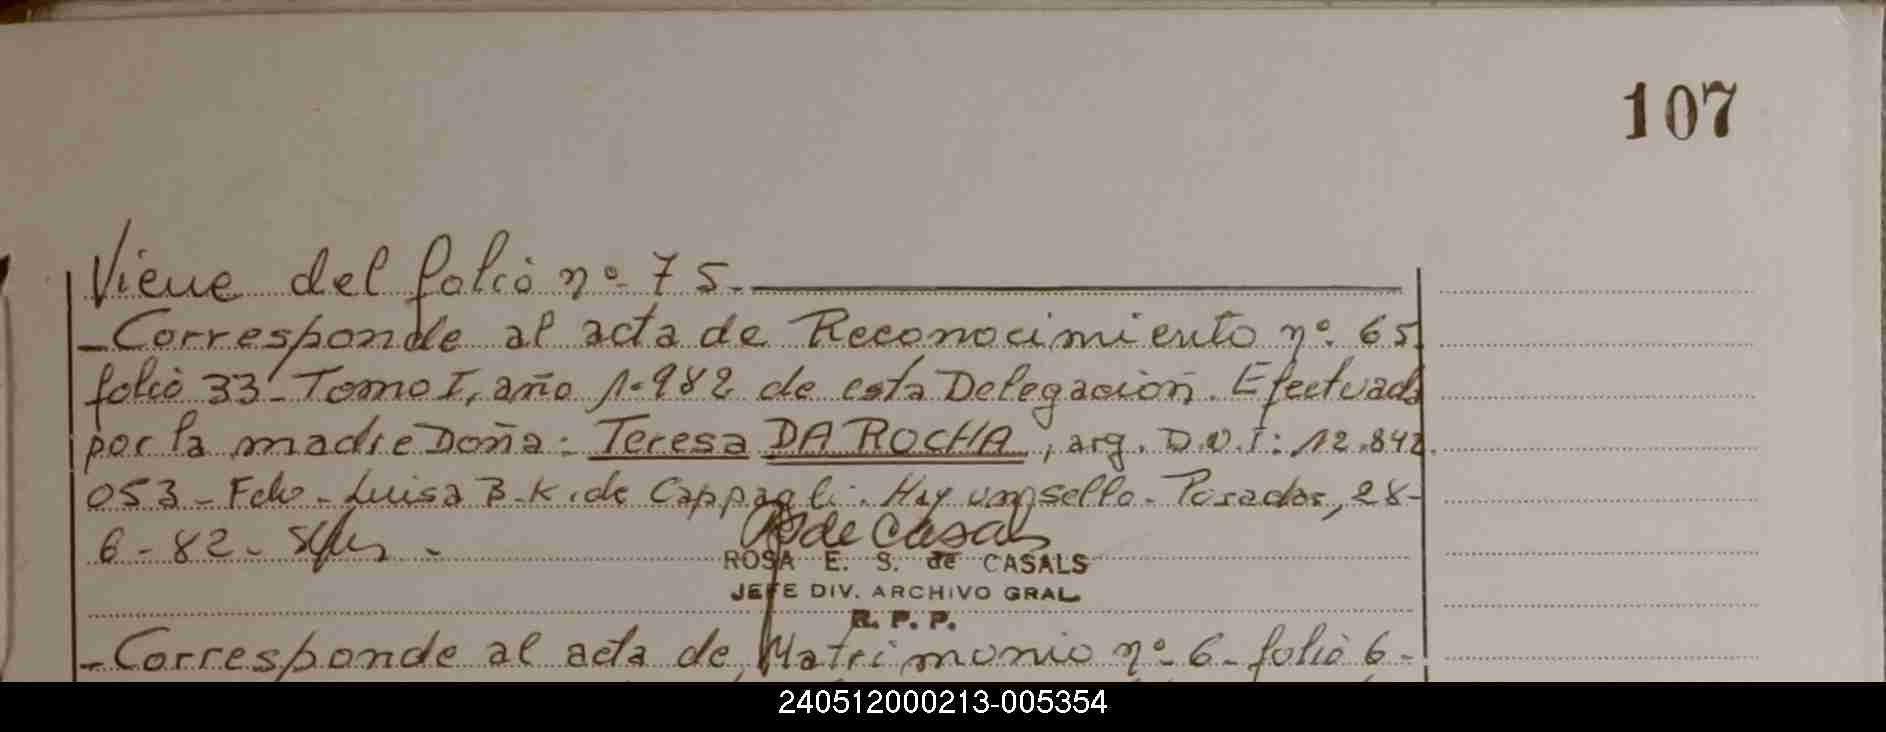 107
Viene del folio nº 75.
- Corresponde al acta de Reconocimiento nº. 65
folio 33 - Tomo I, año 1.982 de esta Delegación. Efectuada
por la madre Doña: Teresa DA ROCHA, arg. D.N.I: 12.842.
053 - Fdo - Luisa B. K. de Cappagli. Hay un sello - Posadas, 28-
6 - 82 -
R S de Casals
ROSA E. S. de CASALS
JEFE DIV. ARCHIVO GRAL
R. P. P.
- Corresponde al acta de Matrimonio nº 6 - folio 6 -
240512000213-005354